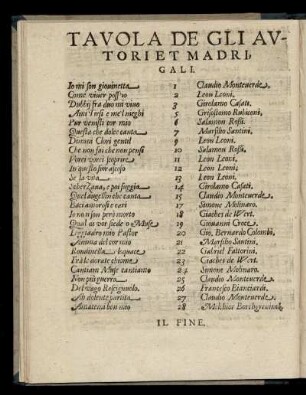 TAVOLA DE GLI AV-
TORI ET MADRI,
GALI.
Io mi son giovinetta 1 Claudio Monteverde.
Come viver poss'io 2 Leon Leoni.
Dubbij fra duo mi vivo 3 Girolamo Casati.
5
Pur venisti cor mio 6 Salamon Rossi.
Questa che dolce canta 7 Marsilio Santini.
Dimmi Clori gentil 9 Leon Leoni.
Che non fai che non pensi 10 Salamon Rossi.
11 Leon Leoni.
12 Leon Leoni.
Se la vita 13 Leon Leoni.
14 Girolamo Casati.
Quel augellin che canta 15 Claudio Monteverde.
Baci amorosi e cari 17 Simone Molinaro.
Io non son però morto 18 Giaches de Wert.
19 Giovanni Croce.
Leggiadro mio Pastor 20 Gio. Bernardo Colombi.
Anima del cor mio 21 Marsilio Santini.
Rondinella 22 Gabriel Fattorini.
Fra le dorate chiome 23 Giaches de Wert.
Cantiam Muse cantiamo 24 Simone Molinaro.
Non più guerra 25 Claudio Monteverde.
Del vago Rosignuolo. 26 Francesco Bianciardi.
Ah dolente partita 27 Claudio Monteverde.
Amatemi ben mio 28 Melchior Borchgrevinck.
IL FINE.